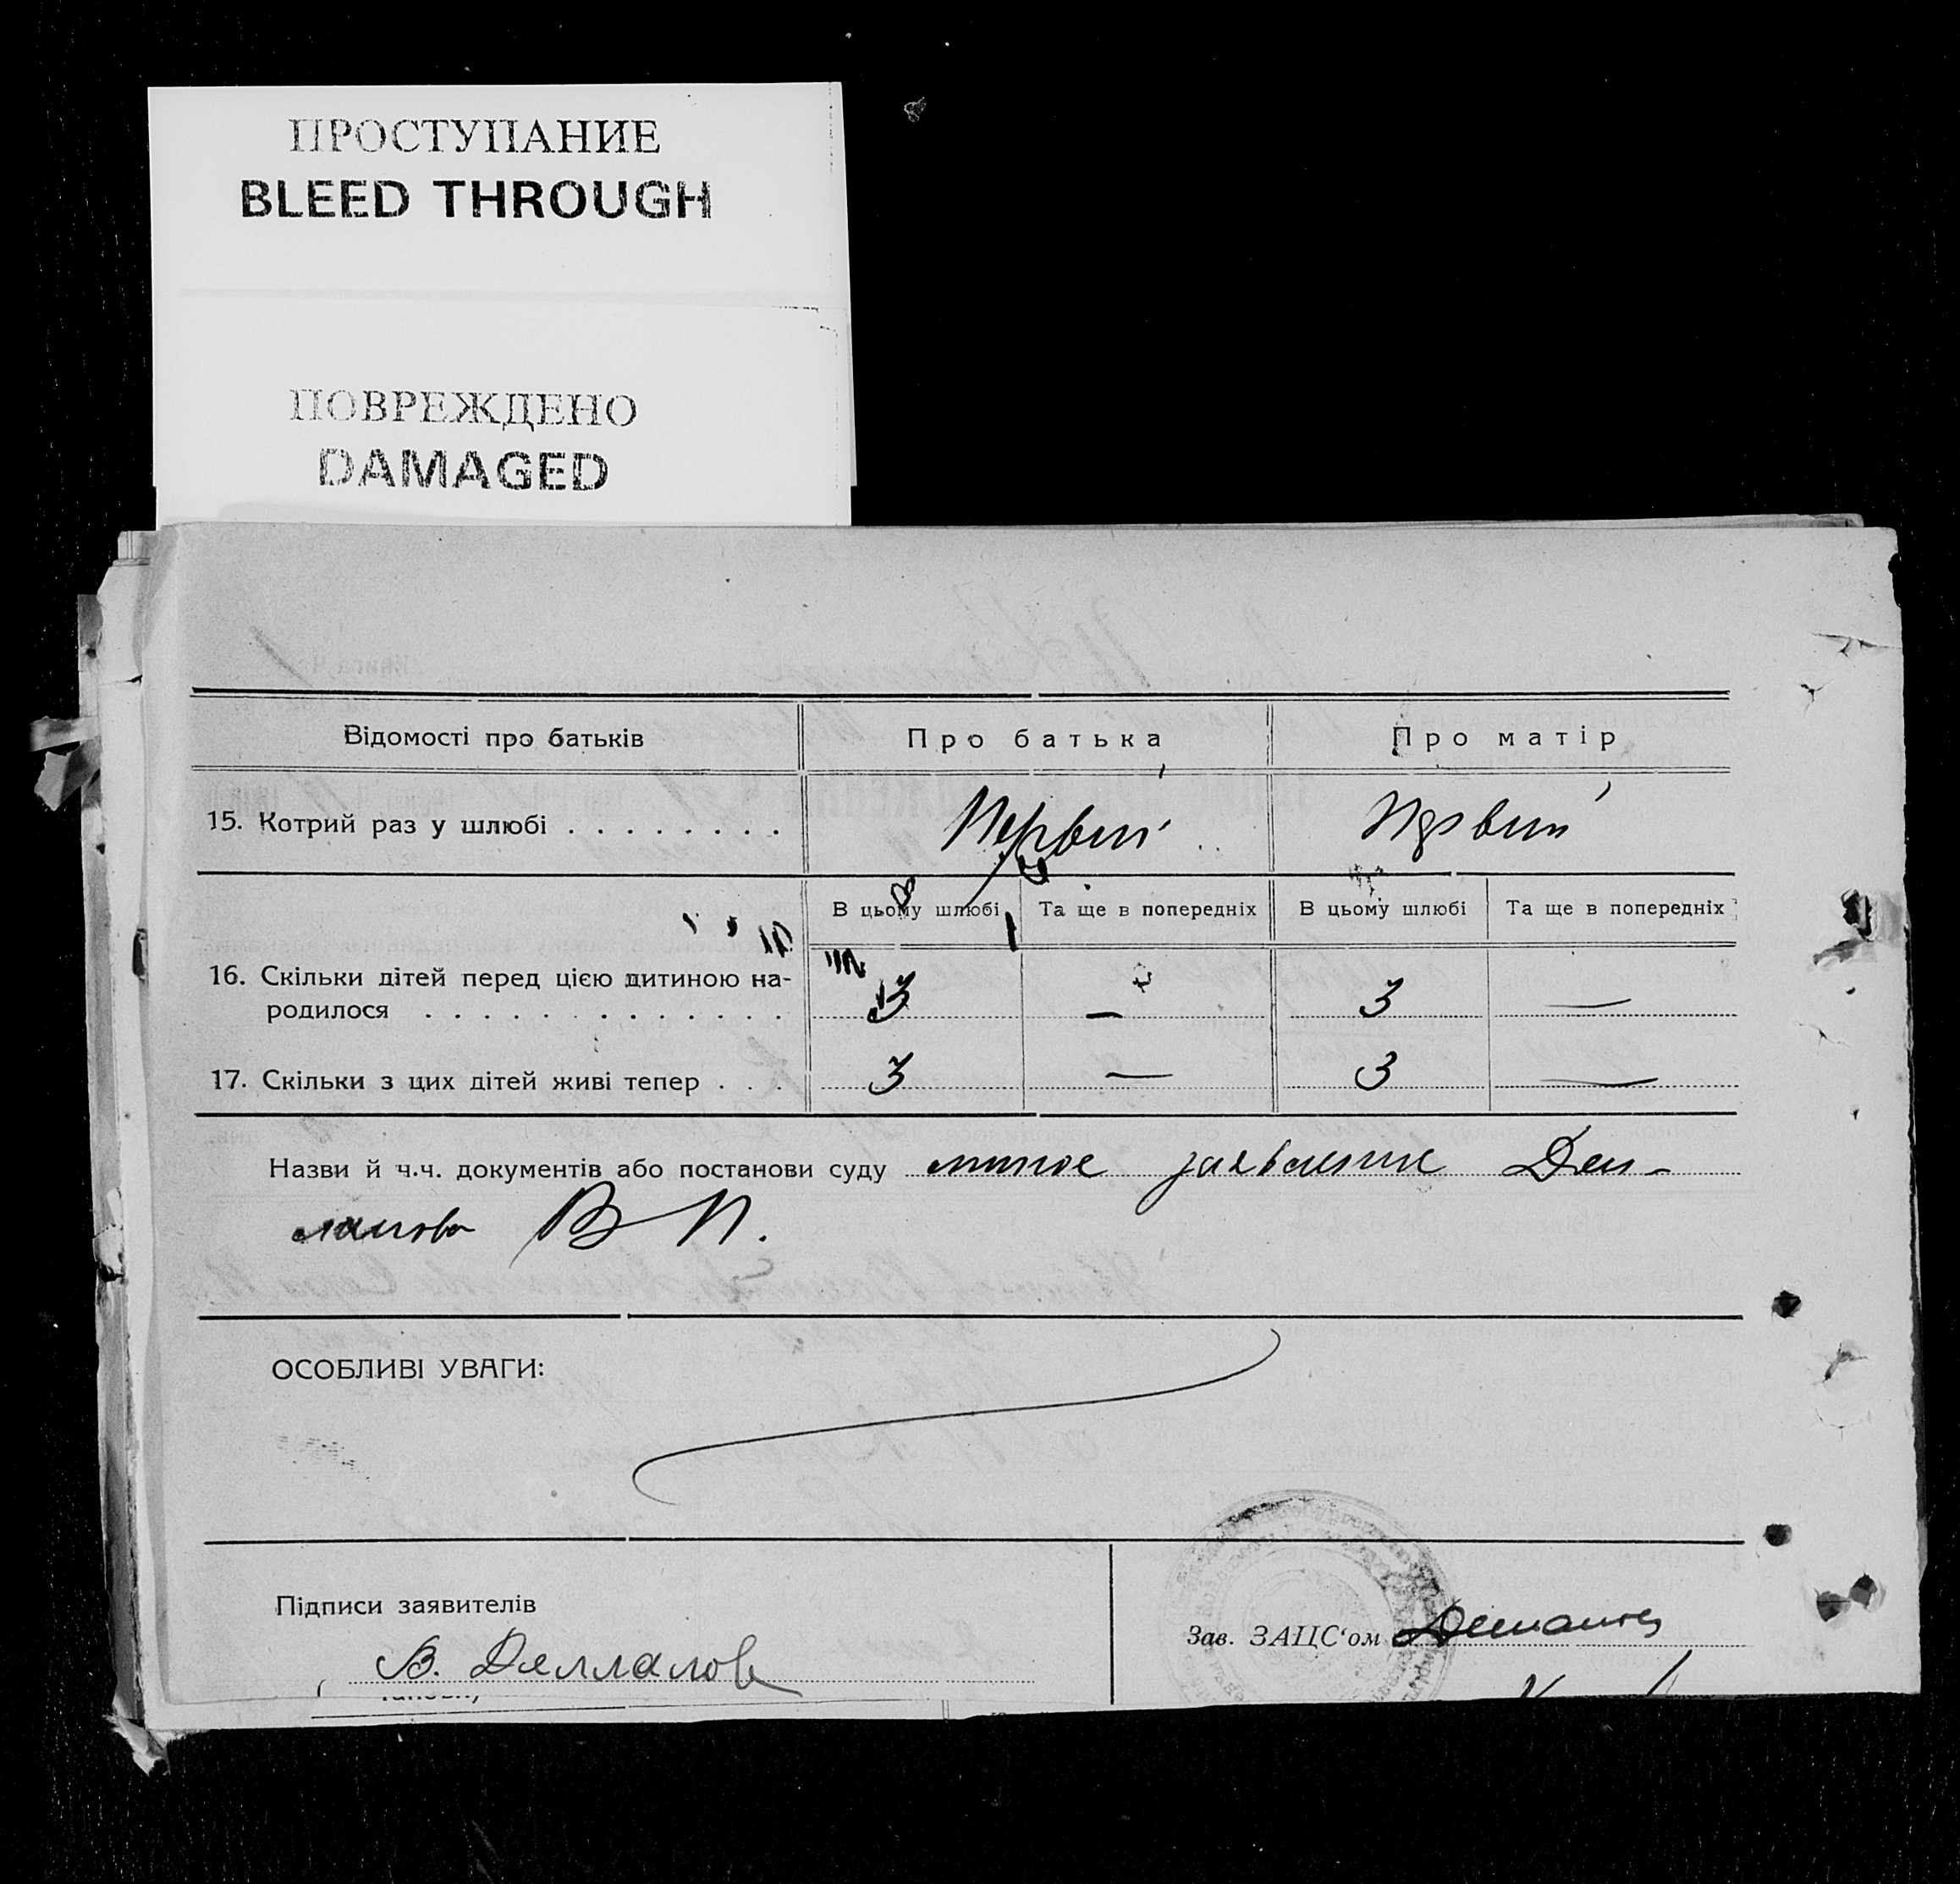 ПРОСТУПАНИЕ
BLEED THROUGH
ПОВРЕЖДЕНО
DAMAGED
Відомості про батьків Про батька Про матір
15. Котрий раз у шлюбі . . . . . . . . Первый Первый
В цьому шлюбі Та ще в попередніх В цьому шлюбі Та ще в попередніх
16. Скільки дітей перед цією дитиною на-
родилося . . . . . . . . . . . . . 3 — 3 —
17. Скільки з цих дітей живі тепер . . . 3 — 3 —
Назви й ч.ч. документів або постанови суду личное заявление
В П.
ОСОБЛИВІ УВАГИ:
Підписи заявителів
Зав. ЗАЦС‘ом
В.